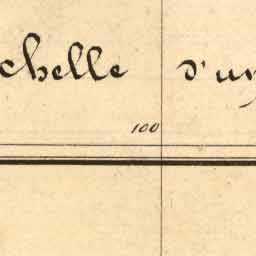 chelle d'un
100